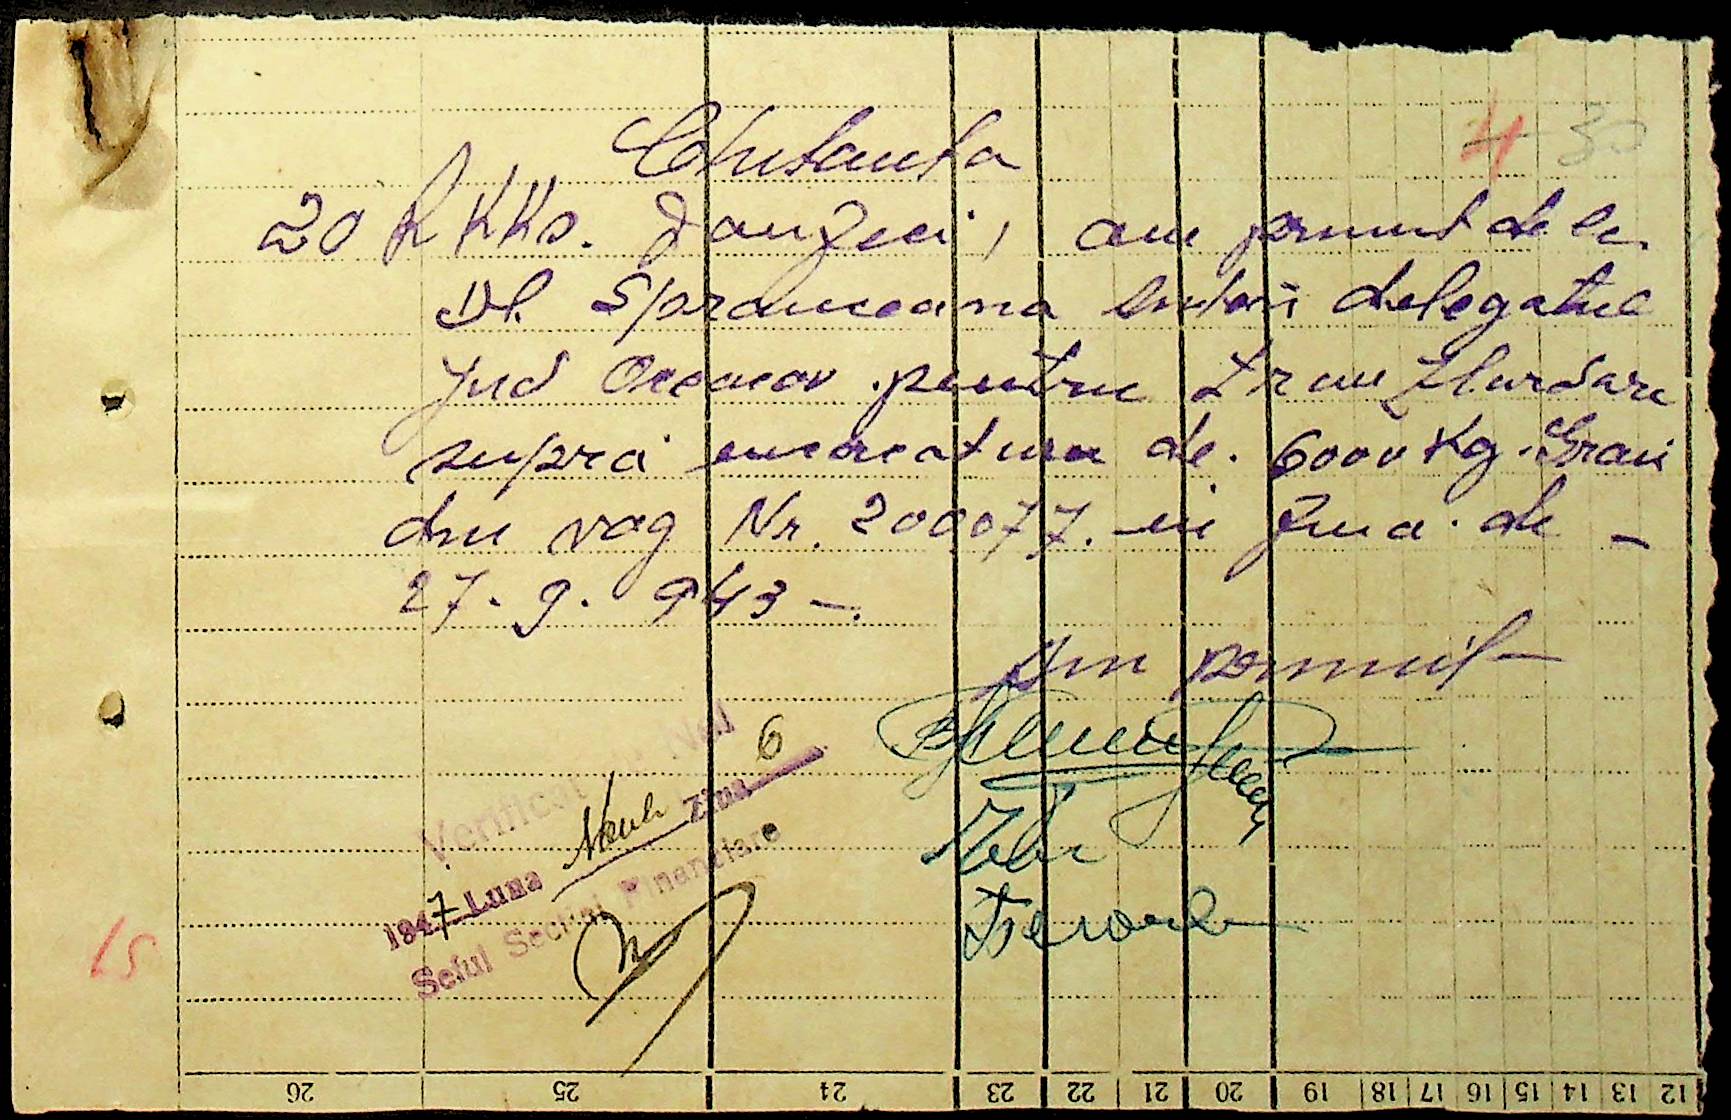 Chitanta
4 30
20 RKKs. douZeci, am primit dela
Dl. Spranceana delegatul
Jud Oceacov pentru tranzbordare
supra encarcatura de 6000 Kg. Grau
din vag Nr. 200077. in Ziua de –
27. 9. 943 –.
Am primit
Verificat
6
1947 Luna Zina
Seful Sectiei Financiare
15
26 25 24 23 22 21 20 19 18 17 16 15 14 13 12